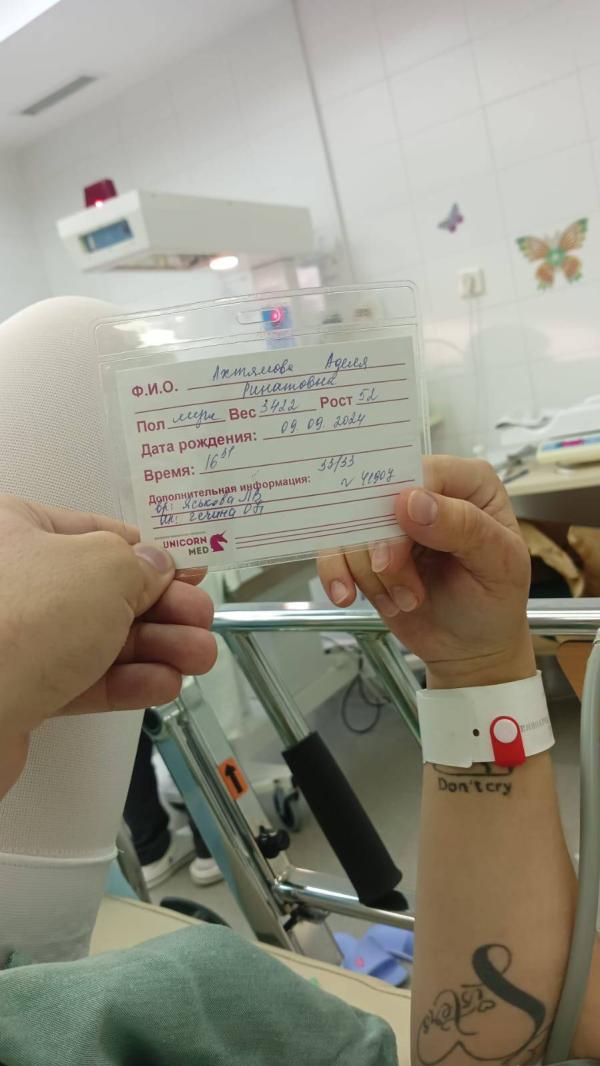 Ф.И.О. Ахтямова Аделя
Ринатовна
Пол муж Вес 3422 Рост 52
Дата рождения: 09.09.2024
Время: 16 51
Дополнительная информация: 33/33
вр: Яськова №41907
ак: Гечина
UNICORN
MED
Don't cry
Sisters